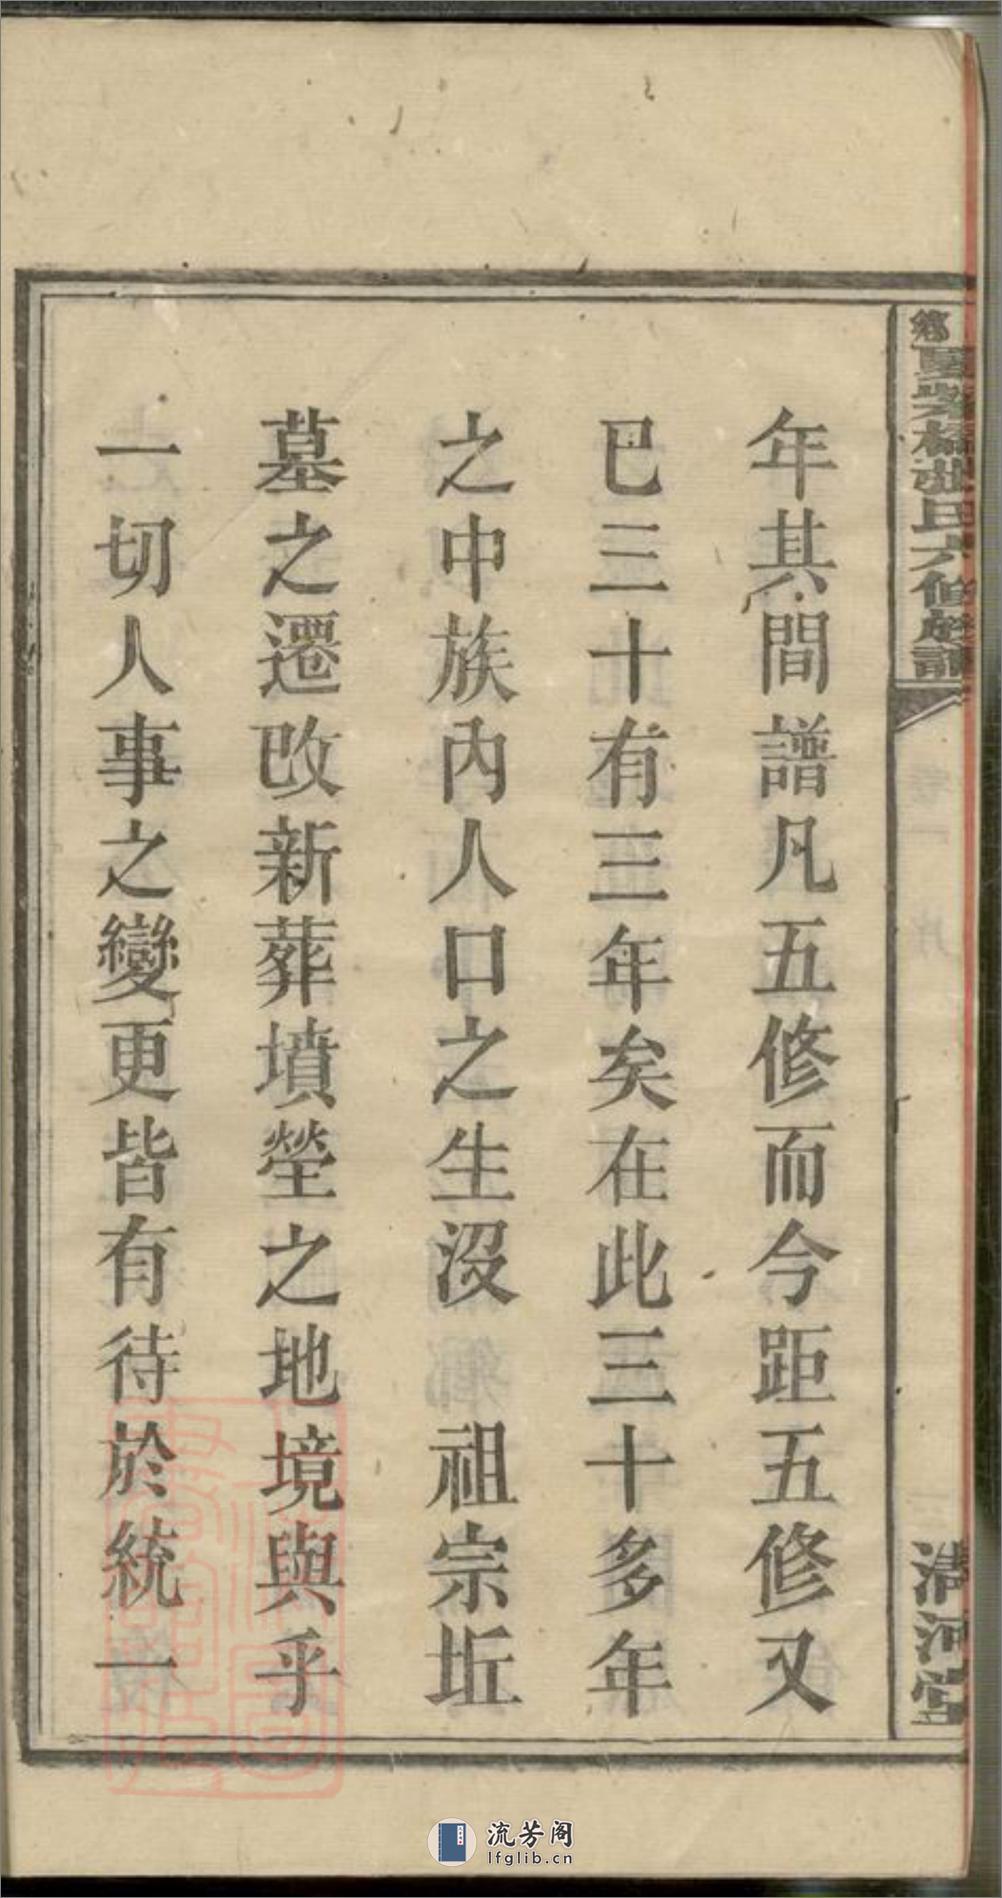 年其間譜凡五修而今距五修又
已三十有三年矣在此三十多年
之中族內人口之生沒 祖宗坵
墓之遷改新葬墳塋之地境與乎
一切人事之變更皆有待於統一
張氏六修族譜
清河堂
流芳阁
lfglib.cn